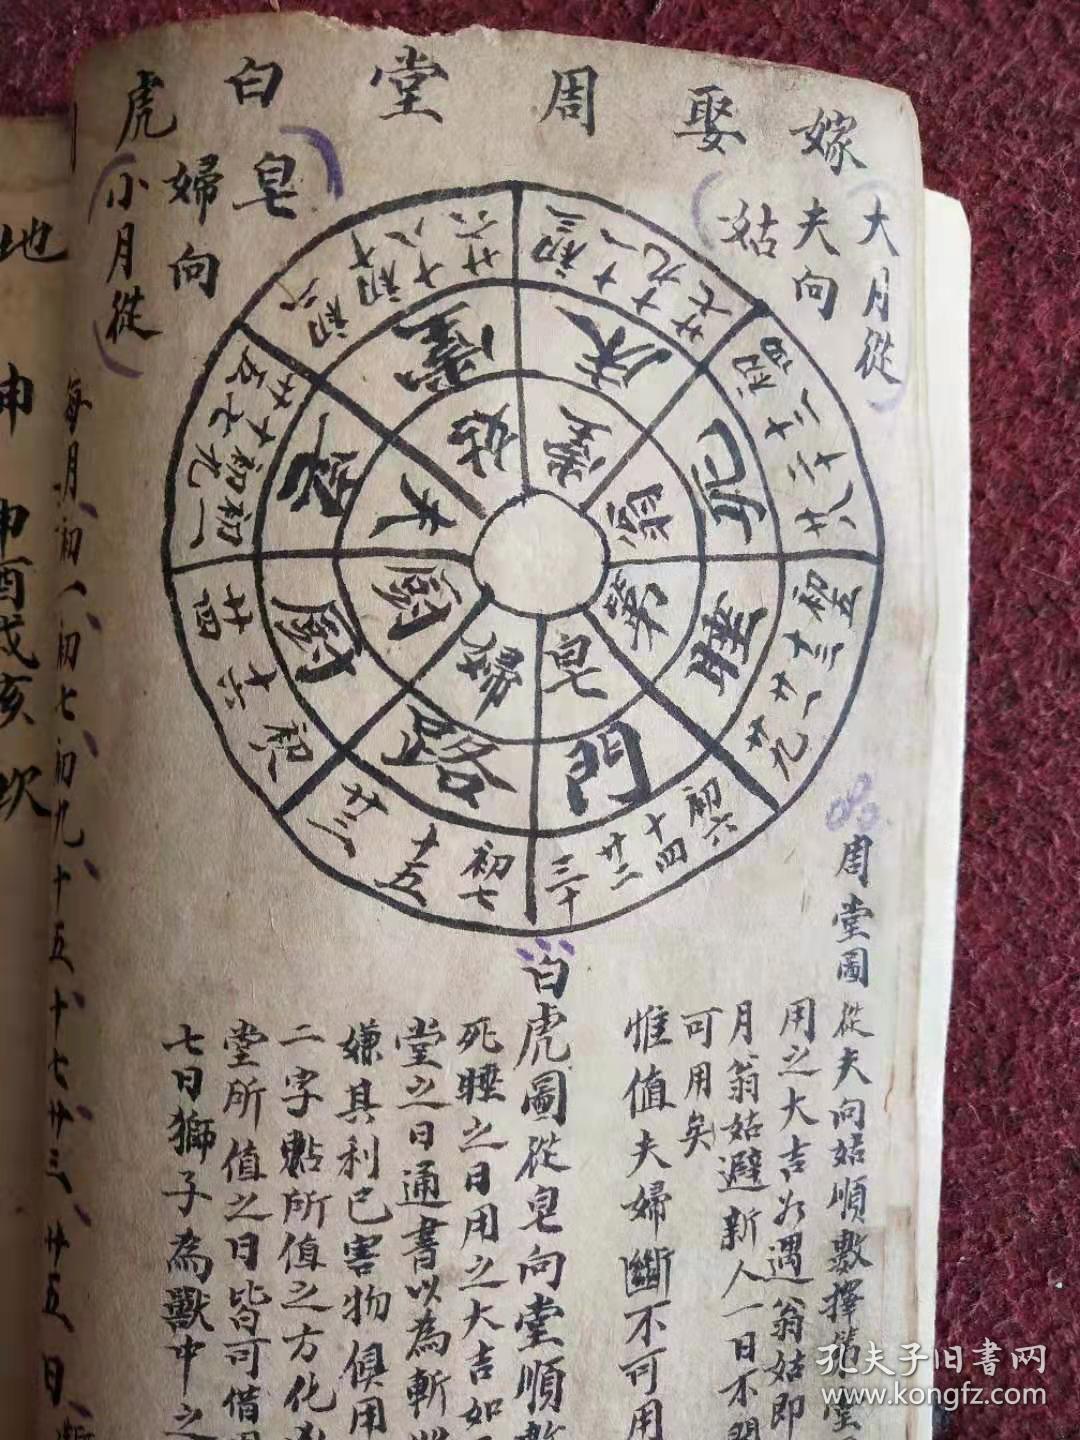 嫁娶周堂白虎
大月從
夫向
姑
皂
婦向
小月從
初三
十一
十九
廿七
初四
十二
二十
廿八
初五
十三
廿一
廿九
初六
十四
廿二
三十
初七
十五
廿三
初八
十六
廿四
初一
初九
十七
廿五
初十
廿六
床
死
睡
門
路
廚
堂
翁
第
皂
婦
廚
夫
姑
周堂圖從夫向姑順數擇第堂
用之大吉如遇翁姑即
月翁姑避新人一日不
可用矣
惟值夫婦斷不可用
白虎圖從皂向堂順數
死睡之日用之大吉如
堂之日通書以為斬
嫌其利已害物俱用
二字點所值之方化
堂所值之日皆可借用
七日獅子為獸中之
每月初一初七初九十五十七廿三廿五日
地
申
申酉戌亥坎
孔夫子旧书网
www.kongfz.com